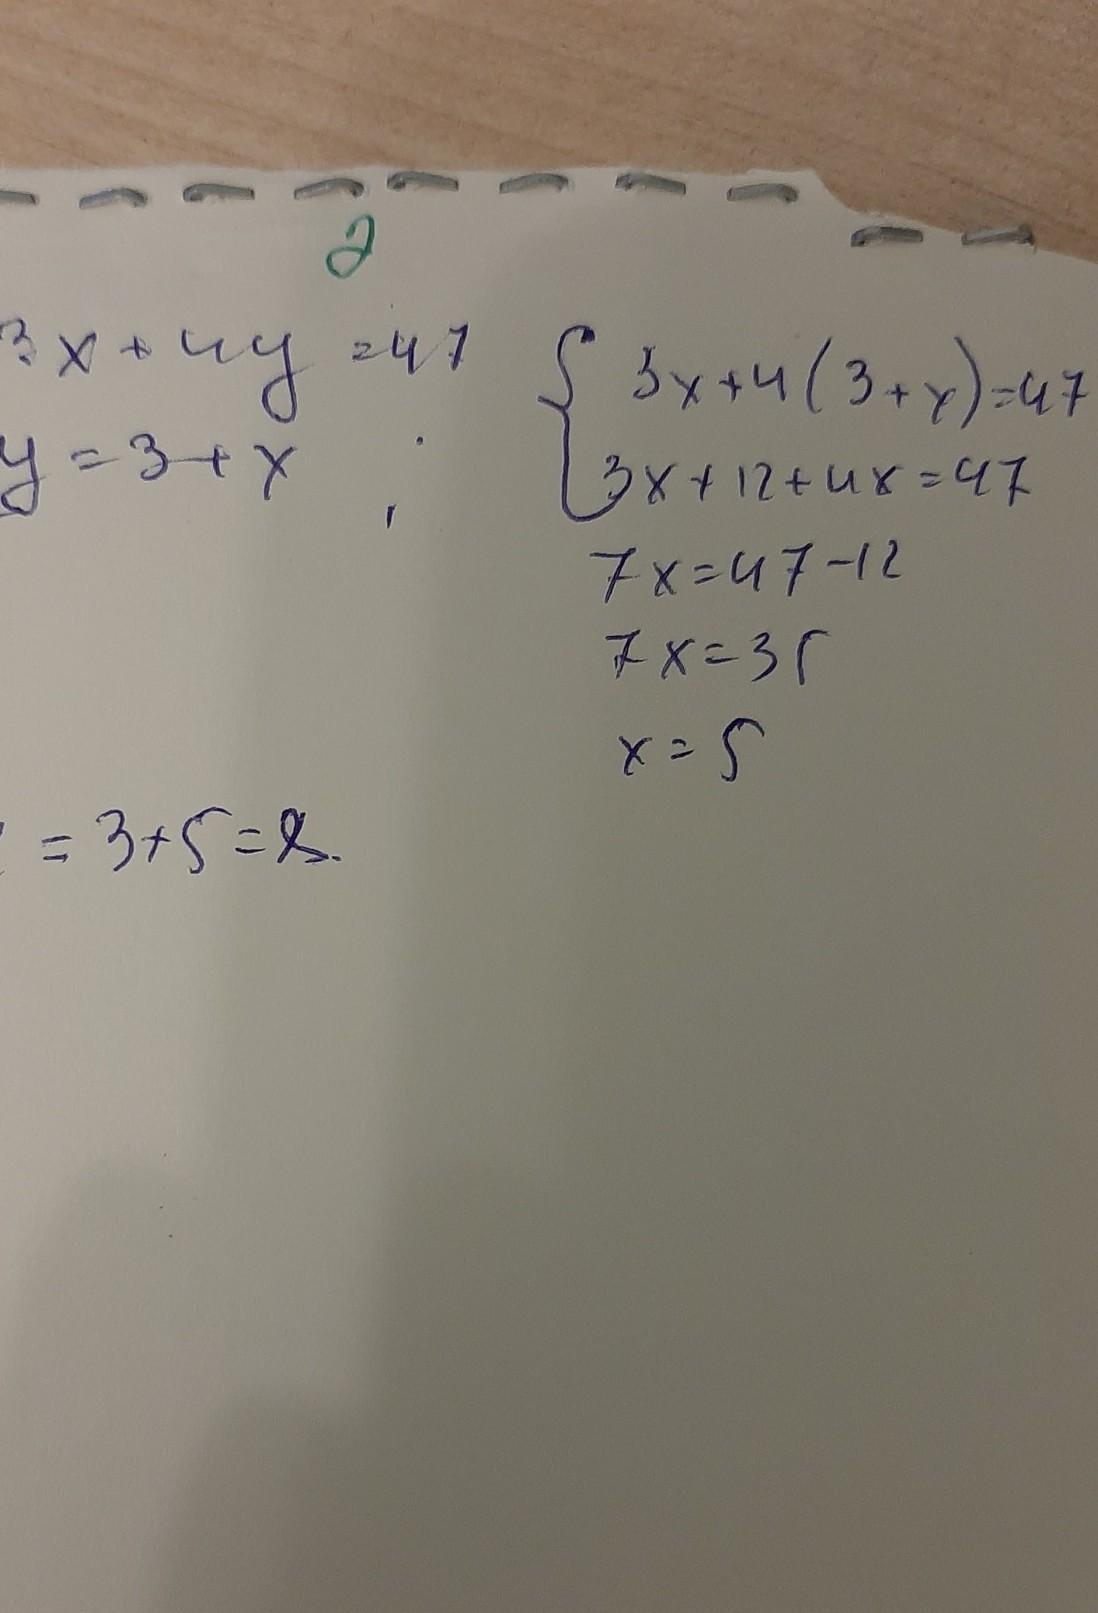 2
3x + 4y = 47
y = 3 + x ;
{ 3x + 4(3 + x) = 47
3x + 12 + 4x = 47
7x = 47 - 12
7x = 35
x = 5
= 3 + 5 = 8.